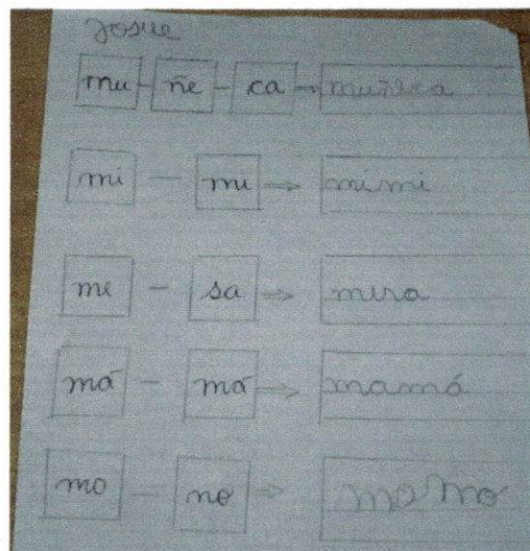 Josue
mu - ñe - ca → muñeca
mi - mi → mimi
me - sa → mesa
má - má → mamá
mo - no → mo mo